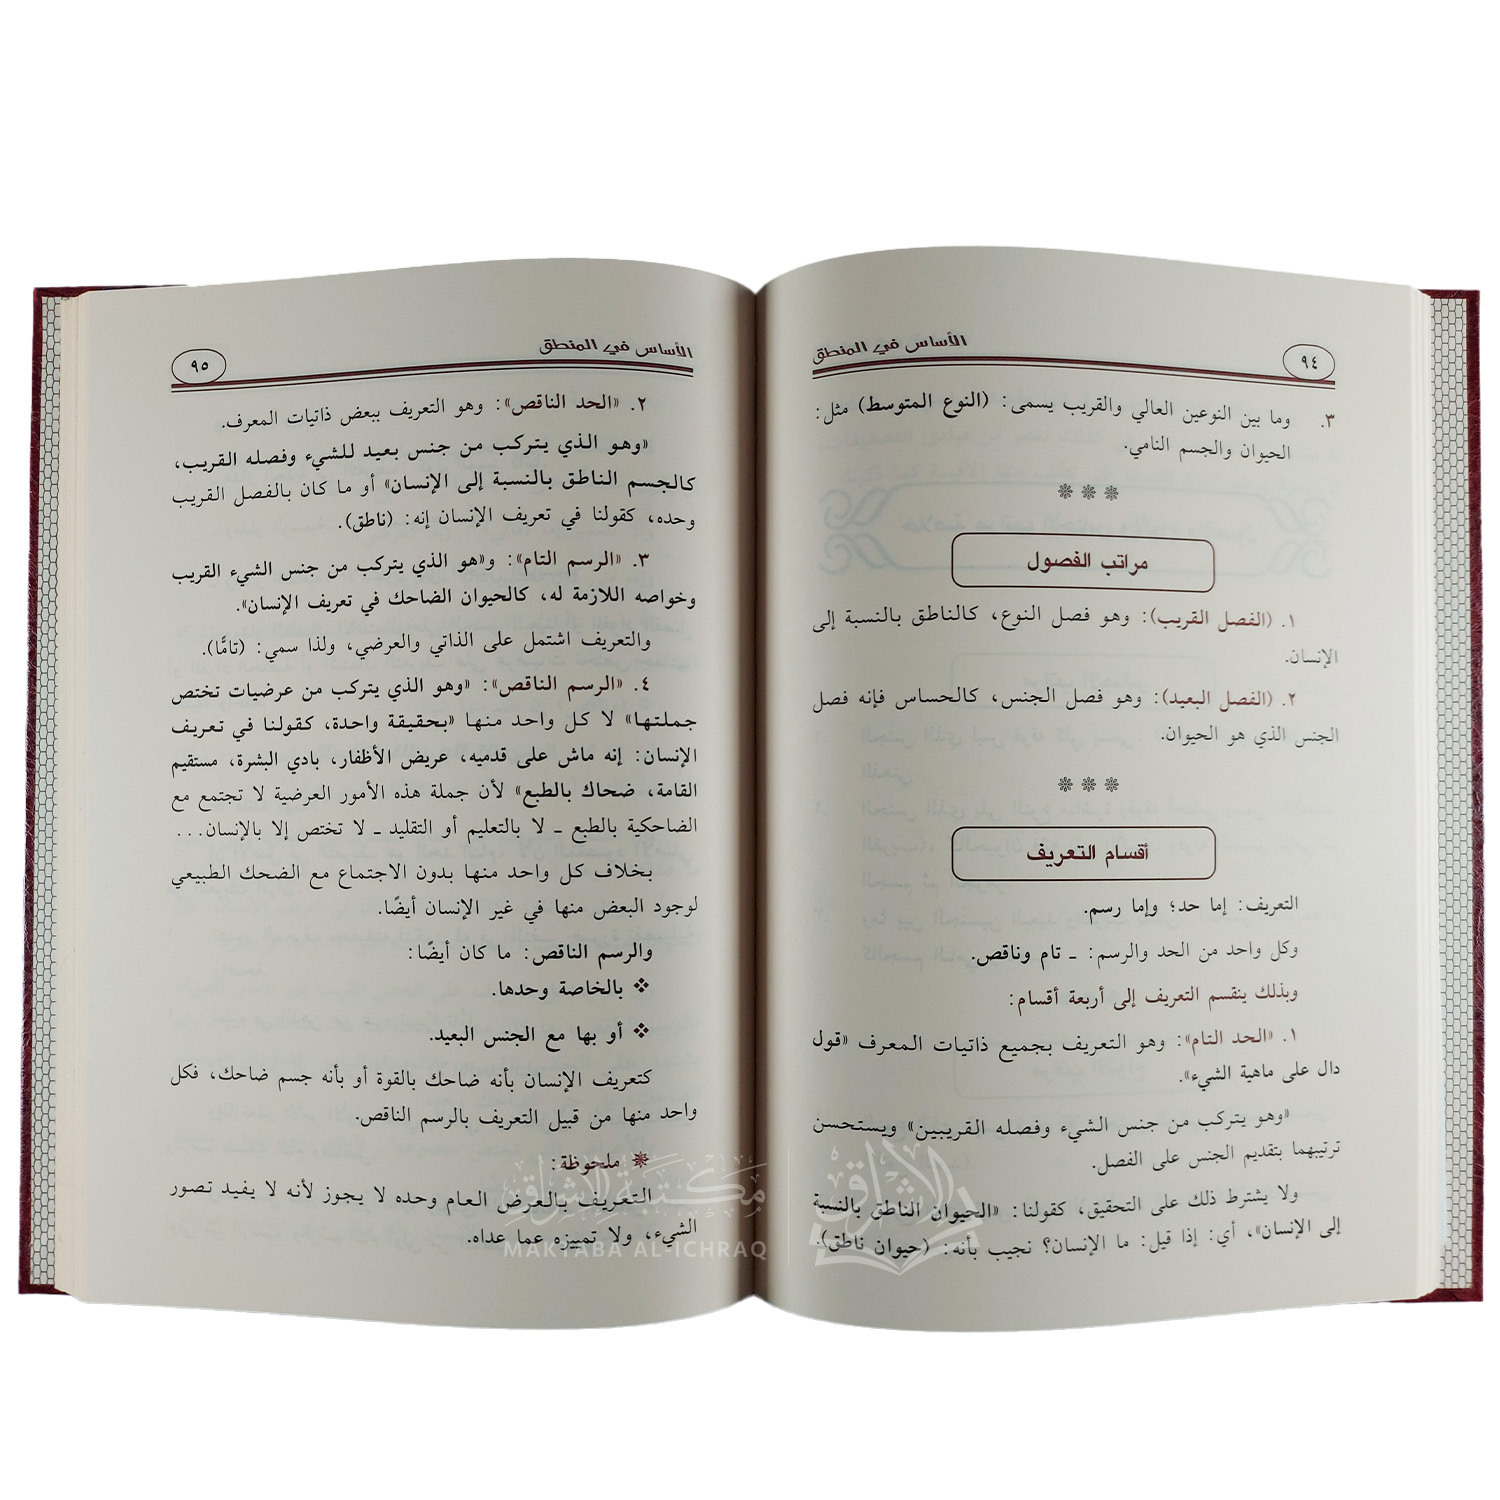 ٩٤
الأساس في المنطق
٣. وما بين النوعين العالي والقريب يسمى: (النوع المتوسط) مثل:
الحيوان والجسم النامي.
❊ ❊ ❊
مراتب الفصول
١. (الفصل القريب): وهو فصل النوع، كالناطق بالنسبة إلى
الإنسان.
٢. (الفصل البعيد): وهو فصل الجنس، كالحساس فإنه فصل
الجنس الذي هو الحيوان.
❊ ❊ ❊
أقسام التعريف
التعريف: إما حد؛ وإما رسم.
وكل واحد من الحد والرسم: ـ تام وناقص.
وبذلك ينقسم التعريف إلى أربعة أقسام:
١. «الحد التام»: وهو التعريف بجميع ذاتيات المعرف «قول
دال على ماهية الشيء».
«وهو يتركب من جنس الشيء وفصله القريبين» ويستحسن
ترتيبهما بتقديم الجنس على الفصل.
ولا يشترط ذلك على التحقيق، كقولنا: «الحيوان الناطق بالنسبة
إلى الإنسان»، أي: إذا قيل: ما الإنسان؟ نجيب بأنه: (حيوان ناطق).
الأساس في المنطق
٩٥
٢. «الحد الناقص»: وهو التعريف ببعض ذاتيات المعرف.
«وهو الذي يتركب من جنس بعيد للشيء وفصله القريب،
كالجسم الناطق بالنسبة إلى الإنسان» أو ما كان بالفصل القريب
وحده، كقولنا في تعريف الإنسان إنه: (ناطق).
٣. «الرسم التام»: و«هو الذي يتركب من جنس الشيء القريب
وخواصه اللازمة له، كالحيوان الضاحك في تعريف الإنسان».
والتعريف اشتمل على الذاتي والعرضي، ولذا سمي: (تامًّا).
٤. «الرسم الناقص»: «وهو الذي يتركب من عرضيات تختص
جملتها» لا كل واحد منها «بحقيقة واحدة، كقولنا في تعريف
الإنسان: إنه ماش على قدميه، عريض الأظفار، بادي البشرة، مستقيم
القامة، ضحاك بالطبع» لأن جملة هذه الأمور العرضية لا تجتمع مع
الضاحكية بالطبع ـ لا بالتعليم أو التقليد ـ لا تختص إلا بالإنسان...
بخلاف كل واحد منها بدون الاجتماع مع الضحك الطبيعي
لوجود البعض منها في غير الإنسان أيضًا.
والرسم الناقص: ما كان أيضًا:
❖ بالخاصة وحدها.
❖ أو بها مع الجنس البعيد.
كتعريف الإنسان بأنه ضاحك بالقوة أو بأنه جسم ضاحك، فكل
واحد منها من قبيل التعريف بالرسم الناقص.
❋ ملحوظة:
التعريف بالعرض العام وحده لا يجوز لأنه لا يفيد تصور
الشيء، ولا تمييزه عما عداه.
مكتبة الإشراق
MAKTABA AL-ICHRAQ
الإشراق